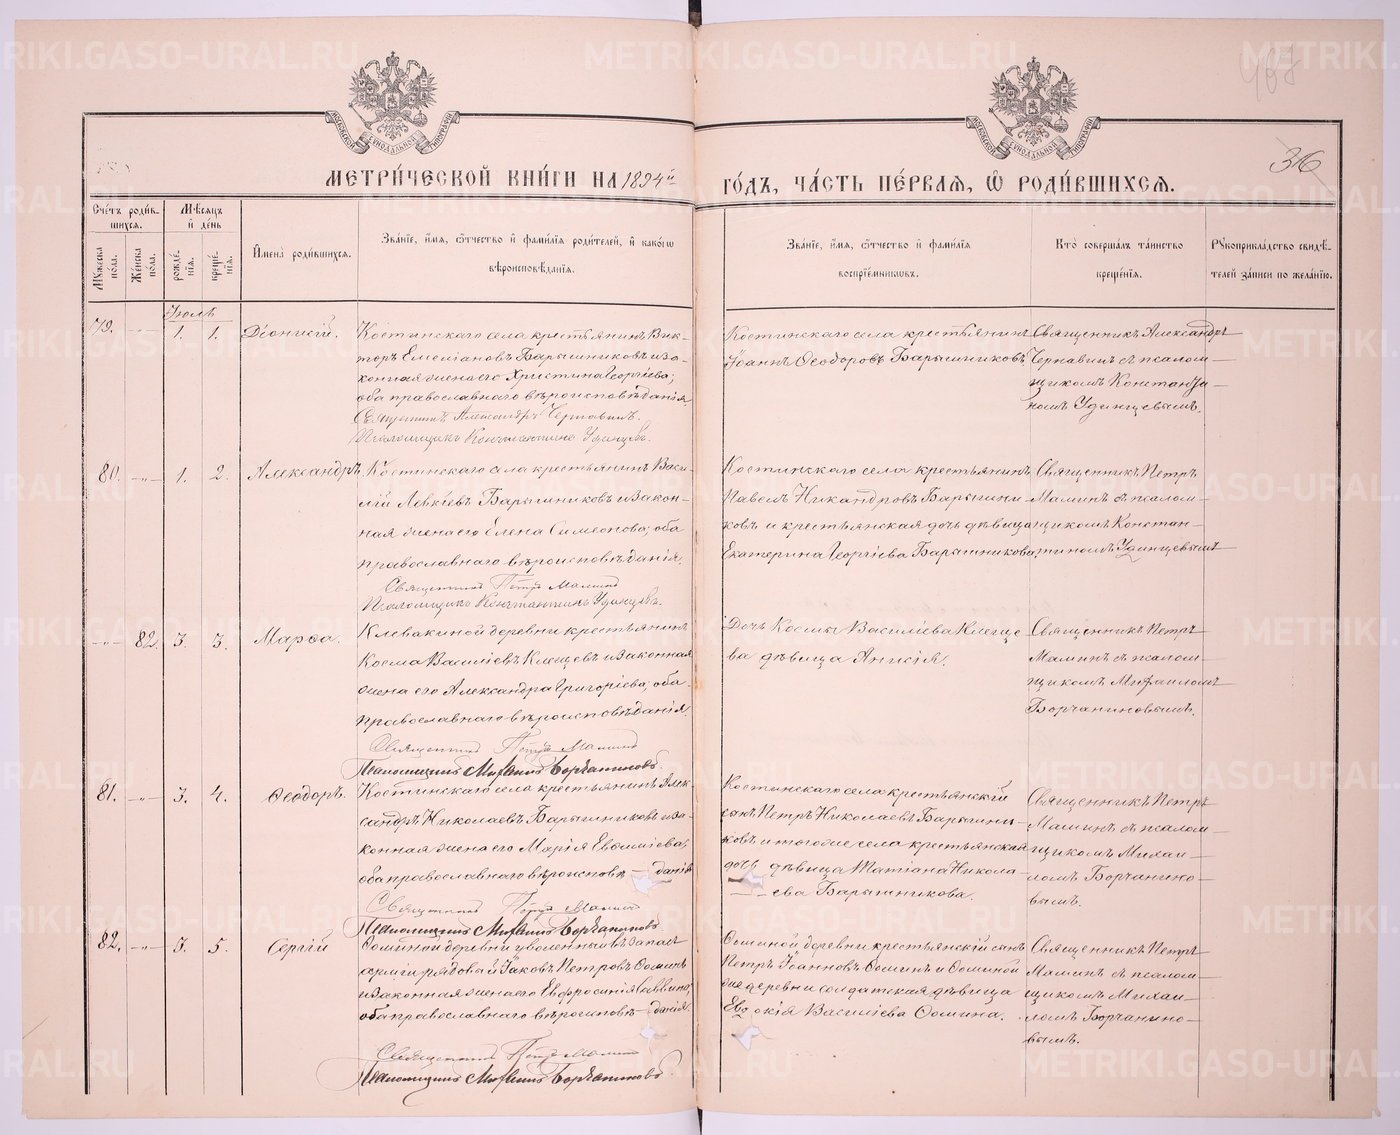 METRIKI.GASO-URAL.RU
МЕТРИ́ЧЕСКОЙ КНИ́ГИ НА 1894й ГО́ДЪ, ЧА́СТЬ ПЕ́РВАЯ, Ѡ РОДИ́ВШИХСЯ.
36
МОСКОВСКОЙ СУНОДАЛЬНОЙ ТИПОГРАФІИ
МОСКОВСКОЙ СУНОДАЛЬНОЙ ТИПОГРАФІИ
Сче́тъ роди́вшихся.
Мѣсяцъ и҆ де́нь
Мꙋ́жеска по́ла.
Же́нска по́ла.
рожде́нїѧ.
креще́нїѧ.
И҆мена̀ роди́вшихсѧ.
Зва́нїе, и҆́мѧ, ѻ҆́тчество и҆ фами́лїѧ роди́телей, и҆ како́гѡ
вѣроисповѣ́данїѧ.
Зва́нїе, и҆́мѧ, ѻ҆́тчество и҆ фами́лїѧ
воспрїе́мникѡвъ.
Кто̀ соверша́лъ та́инство
креще́нїѧ.
Рꙋкоприкла́дство свидѣ́-
телей за́писи по жела́нїю.
Іюль
79. -"- 1. 1. Діонисій.
Костинскаго села крестьянинъ Вик-
торъ Емеліановъ Барышниковъ и за-
конная жена его Христина Георгіева;
оба православнаго вѣроисповѣданія.
Священникъ Александръ Чернавинъ.
Псаломщикъ Константинъ Удинцевъ.
Костинскаго села крестьянинъ
Іоаннъ Ѳеодоровъ Барышниковъ.
Священникъ Александръ
Чернавинъ съ псалом-
щикомъ Константи-
номъ Удинцевымъ.
80. -"- 1. 2. Александръ
Костинскаго села крестьянинъ Васи-
лій Левкіевъ Барышниковъ и закон-
ная жена его Елена Симеонова; оба
православнаго вѣроисповѣданія.
Священникъ Петръ Маминъ
Псаломщикъ Константинъ Удинцевъ.
Костинскаго села крестьянинъ
Павелъ Никандровъ Барышни-
ковъ и крестьянская дочь дѣвица
Екатерина Георгіева Барышникова.
Священникъ Петръ
Маминъ съ псалом-
щикомъ Констан-
тиномъ Удинцевымъ
-"- 82. 3. 3. Марѳа.
Клевакиной деревни крестьянинъ
Косма Василіевъ Клещевъ и законная
жена его Александра Григоріева; оба
православнаго вѣроисповѣданія.
Священникъ Петръ Маминъ
Псаломщикъ Михаилъ Борчаниновъ.
Дочь Космы Василіева Клеще-
ва дѣвица Анисія.
Священникъ Петръ
Маминъ съ псалом-
щикомъ Михаиломъ
Борчаниновымъ.
81. -"- 3. 4. Ѳеодоръ.
Костинскаго села крестьянинъ Алек-
сандръ Николаевъ Барышниковъ и за-
конная жена его Марія Евѳиміева;
оба православнаго вѣроисповѣ-даніѧ
Священникъ Петръ Маминъ
Псаломщикъ Михаилъ Борчаниновъ
Костинскаго села крестьянскій
сынъ Петръ Николаевъ Барышни-
ковъ и того же села крестьянская
дочь дѣвица Татіана Никола-
ева Барышникова.
Священникъ Петръ
Маминъ съ псалом-
щикомъ Михаи-
ломъ Борчанино-
вымъ.
82. -"- 3. 5. Сергій
Ѳоминой деревни уволенный въ запасъ
арміи рядовой Іаковъ Петровъ Ѳоминъ
и законная жена его Евфросинія Саввина;
оба православнаго вѣроисповѣ-данія.
Священникъ Петръ Маминъ
Псаломщикъ Михаилъ Борчаниновъ
Ѳоминой деревни крестьянскій сынъ
Петръ Іоанновъ Ѳоминъ и Ѳоминой
же деревни солдатская дѣвица
Евдокія Василіева Ѳомина.
Священникъ Петръ
Маминъ съ псалом-
щикомъ Михаи-
ломъ Борчанино-
вымъ.